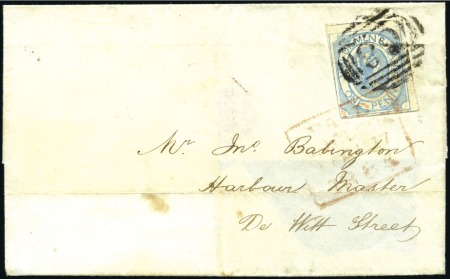 ONE PENNY
Mr Jno. Babington
Harbour Master
De Witt Street